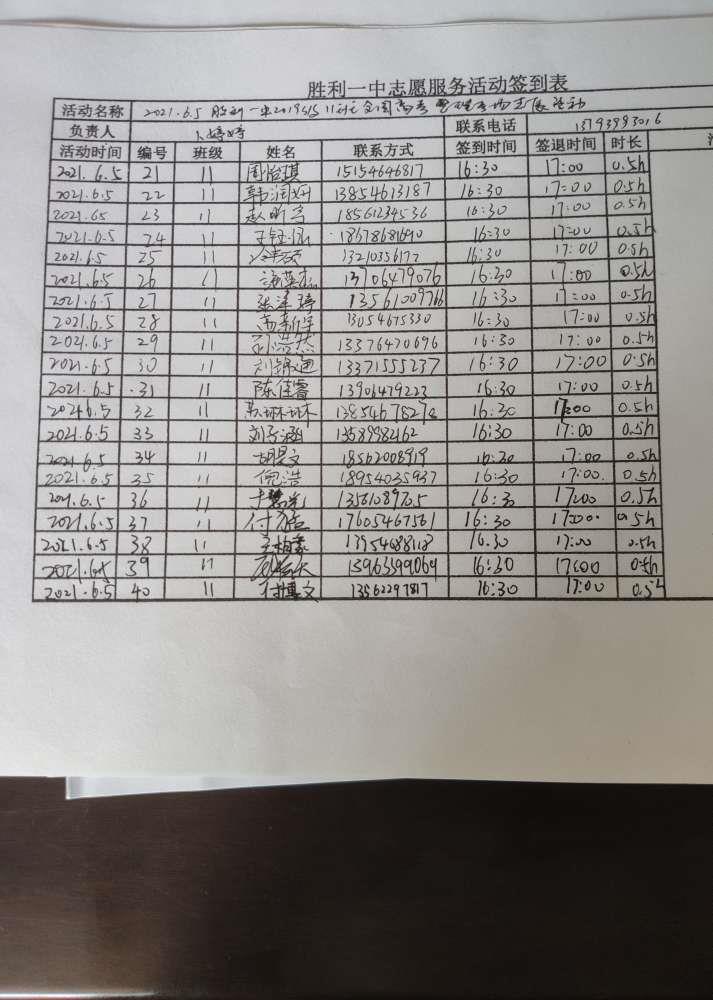 胜利一中志愿服务活动签到表
活动名称 2021.6.5 胜利一中2019级11班 全国高考 整理考场志愿活动
负责人 卜婷婷 联系电话 13793993016
活动时间 编号 班级 姓名 联系方式 签到时间 签退时间 时长
2021.6.5 21 11 周怡琪 15154646817 16:30 17:00 0.5h
2021.6.5 22 11 韩润妍 13854613187 16:30 17:00 0.5h
2021.6.5 23 11 赵昕宇 18561234536 16:30 17:00 0.5h
2021.6.5 24 11 18678681690 16:30 17:00 0.5h
2021.6.5 25 11 13210356177 16:30 17:00 0.5h
2021.6.5 26 11 13706479076 16:30 17:00 0.5h
2021.6.5 27 11 张泽婷 13561009766 16:30 17:00 0.5h
2021.6.5 28 11 高新宇 13054675330 16:30 17:00 0.5h
2021.6.5 29 11 孙浩然 13376470696 16:30 17:00 0.5h
2021.6.5 30 11 刘锦通 13371555237 16:30 17:00 0.5h
2021.6.5 31 11 陈佳睿 13906479223 16:30 17:00 0.5h
2021.6.5 32 11 苏琳琳 16:30 17:00 0.5h
2021.6.5 33 11 刘子涵 13589982162 16:30 17:00 0.5h
2021.6.5 34 11 胡昊文 18562008919 16:30 17:00 0.5h
2021.6.5 35 11 倪浩 18954035937 16:30 17:00 0.5h
2021.6.5 36 11 13581089705 16:30 17:00 0.5h
2021.6.5 37 11 17605467561 16:30 17:00 0.5h
2021.6.5 38 11 13954688118 16:30 17:00 0.5h
2021.6.5 39 11 15963599064 16:30 17:00 0.5h
2021.6.5 40 11 付博文 13562297817 16:30 17:00 0.5h